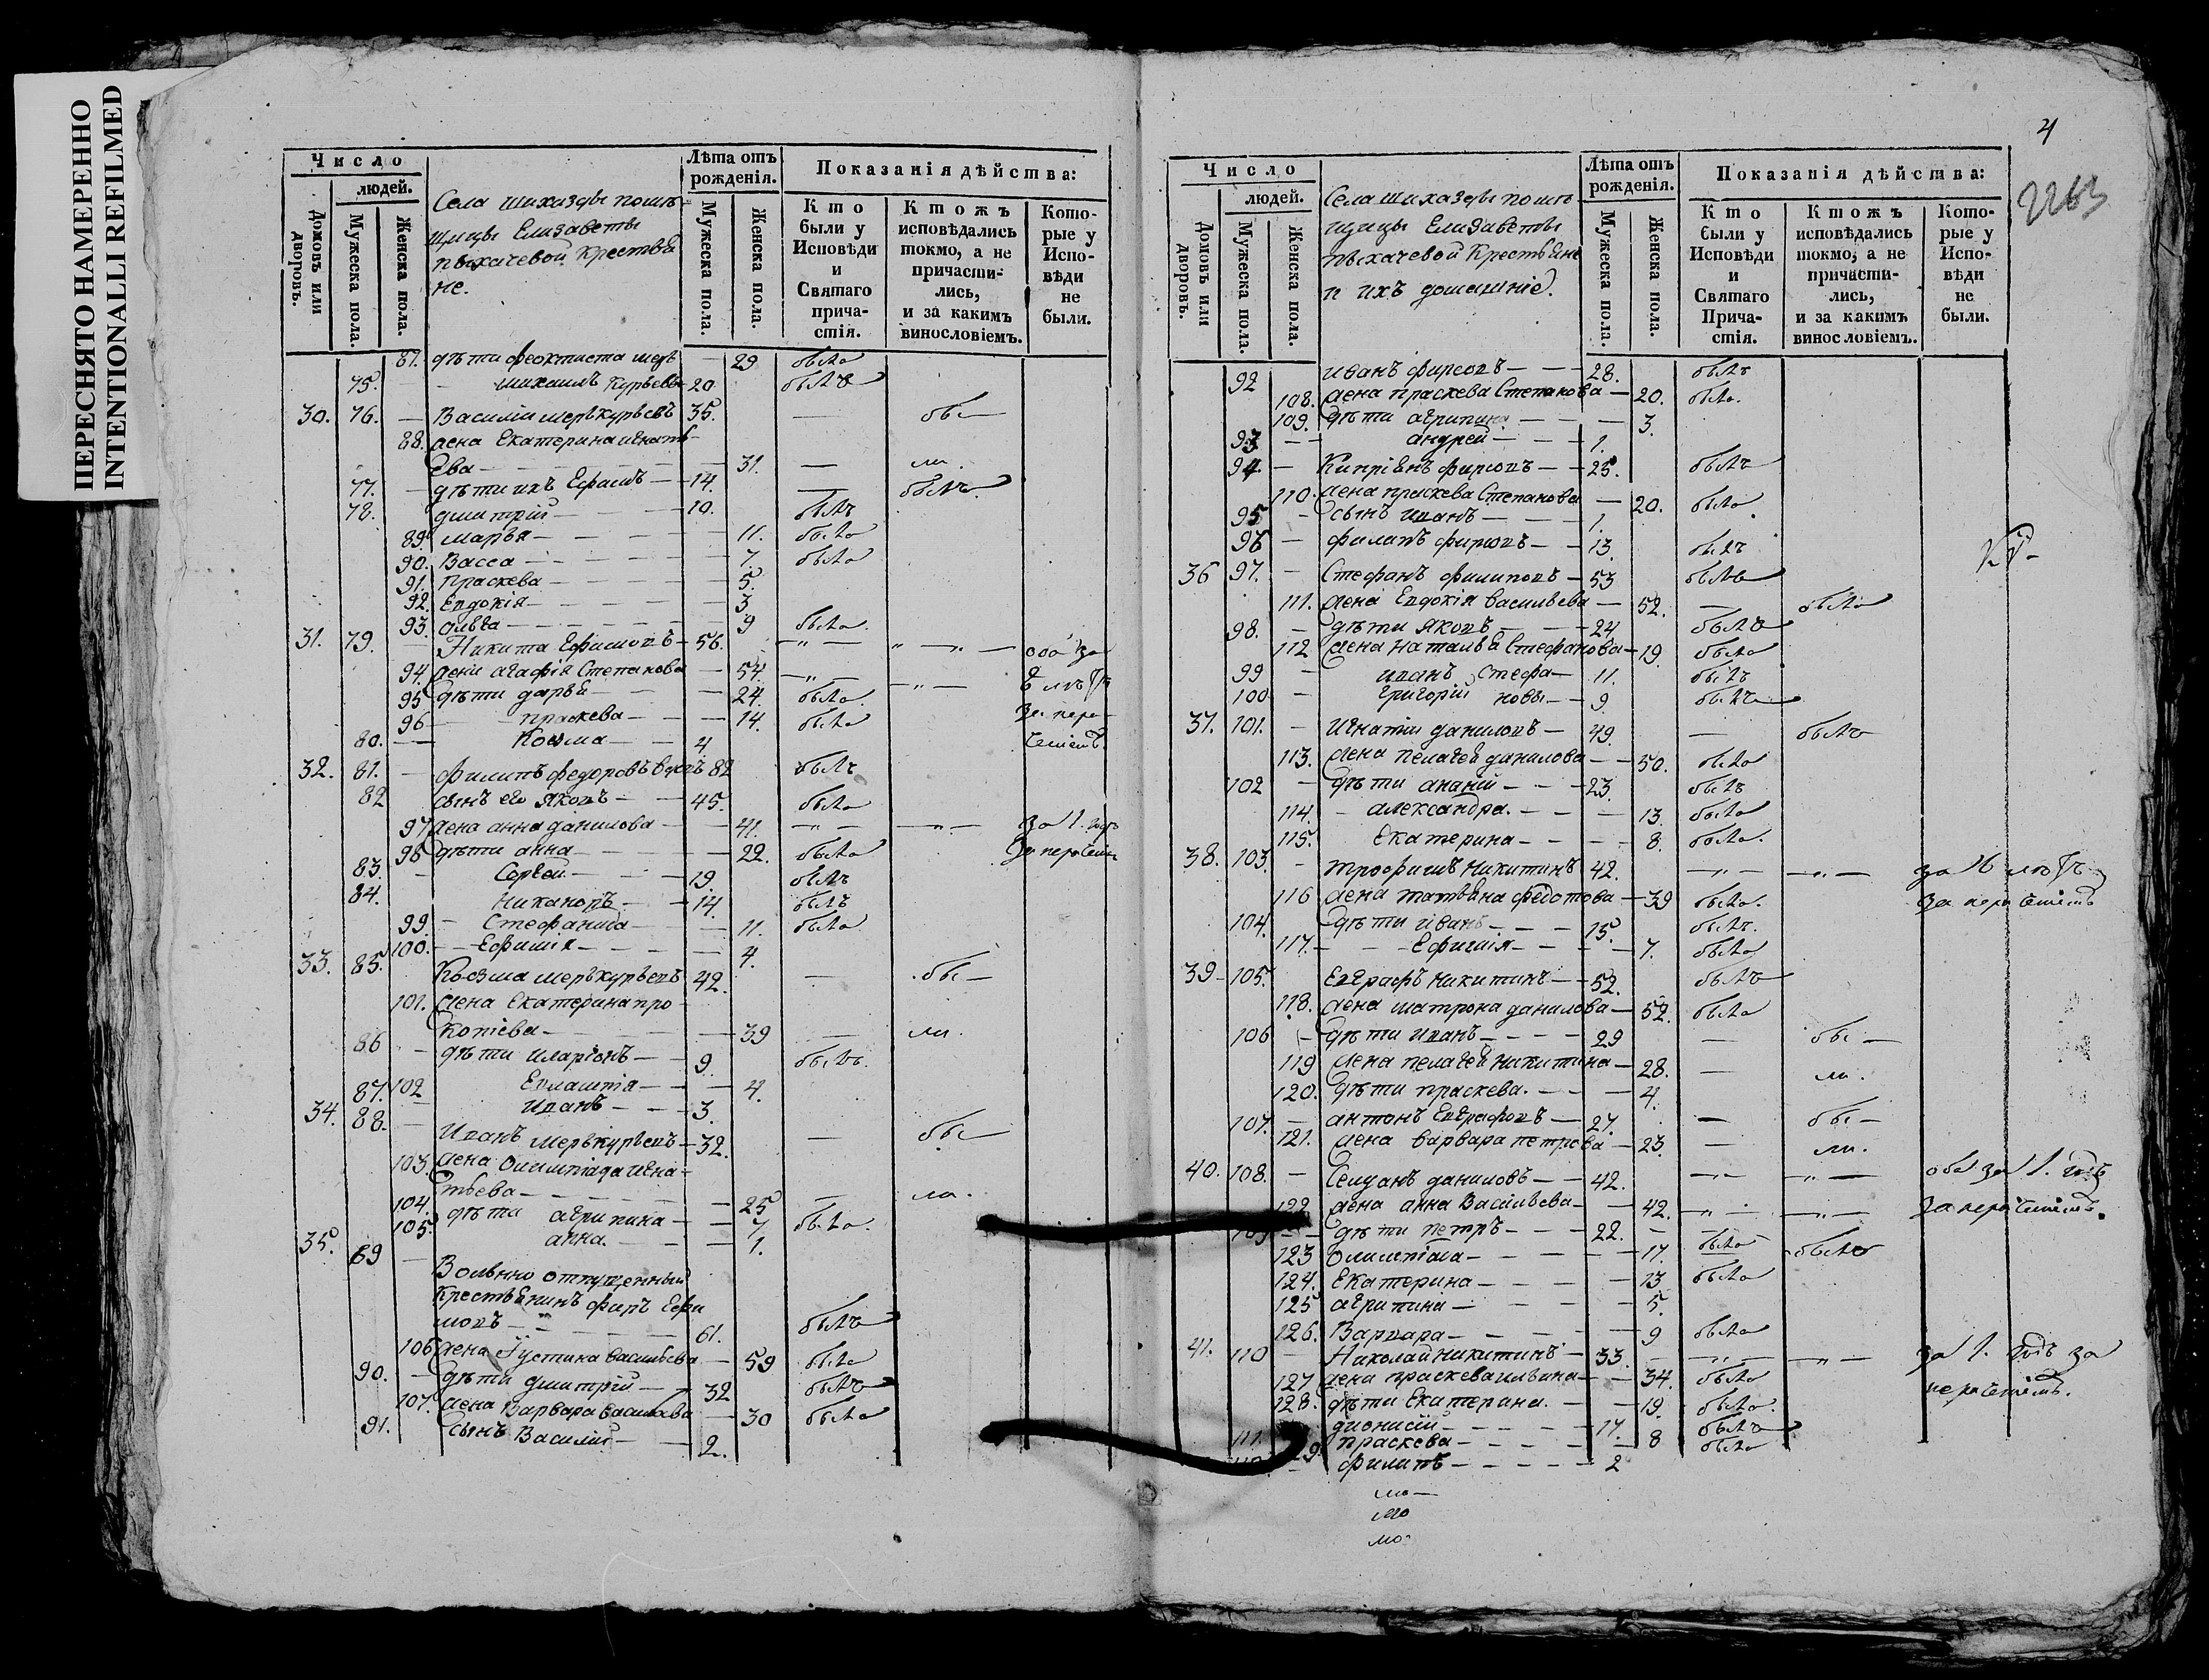 ПЕРЕСНЯТО НАМЕРЕННО
INTENTIONALLI REFILMED
Число
людей.
Домовъ или дворовъ.
Мужеска пола.
Женска пола.
Села Шихазды помѣ-
щицы Елизаветы
Пыхачевой Крестья
не.
Лѣта отъ рожденія.
Мужеска пола.
Женска пола.
Показанія дѣйства:
Кто были у Исповѣди и Святаго причастія.
Ктожъ исповѣдались токмо, а не причасти-лись, и за какимъ винословіемъ.
Кото-рые у Испо-вѣди не были.
87. дѣти феоктиста — 29 была
75. михаилъ — 20 былъ
30. 76. — Василіи меръкурьевъ 35. — бы—
88. жена Екатерина игнать-
Ева — 31. — ли.
77. — дѣти ихъ Ефимъ — 14. — былъ.
78. дмитрій — 10. былъ
89 марья — 11. была
90. Васса — 7. была
91. Праскева — 5.
92. Евдокія — 3
93. Ольга — 9 была.
31. 79. — Никита Ефимовъ — 56. —"— "—"— оба за
94. жена агафія Степанова — 54. —"— —"—
95 дѣти дарья — 24. была.
96 — праскева — 14. была
80. — Козма — 4
32. 81. — филипъ федоровъ вдовъ 82 былъ
82 сынъ его яковъ — 45. была
97 жена анна данилова — 41. —"— —"— за 1. годъ
98 дѣти анна — 22. была
83. — Сергей — 19. былъ
84. Никаноръ — 14. былъ
99. — Стефанида — 11. была
100. — Ефимія — 4.
33. 85. Козма меръкурьевъ 42. — бы—
101. жена Екатерина про
Копіева — 39 — ли.
86 — дѣти иларіонъ — 9 былъ.
102 Евлампія — 4.
87. — иванъ — 3.
34. 88. — Иванъ меръкурьевъ — 32. — бы—
103 жена Олимпіада игна-
тьева — 25 — ли.
104. дѣти агрипина — 7 была.
105. анна. — 1.
35. 89 — Вольно отпущенный
Крестьянинъ фирсъ Ефи
мовъ — 61. былъ
106 жена Іустина васильева — 59 была
90. — дѣти дмитрій — 32 былъ
107. жена Варвара васильева — 30 была
91. сынъ Василій — 2.
4
2263
Число
людей.
Домовъ или дворовъ.
Мужеска пола.
Женска пола.
Села Шихазды помѣ
щицы Елизаветы
пыхачевой Крестьяне
и ихъ домашніе.
Лѣта отъ рожденія.
Мужеска пола.
Женска пола.
Показанія дѣйства:
Кто были у Исповѣди и Святаго Прича-стія.
Ктожъ исповѣдались токмо, а не причасти-лись, и за какимъ винословіемъ.
Кото-рые у Испо-вѣди не были.
92 иванъ фирсовъ — 28. былъ
108. жена праскева Степанова — 20. была.
109. дѣти агрипина — 3.
93 — андрей — 1.
94 — Кипріянъ фирсовъ — 25. былъ
110. жена праскева Степанова — 20. была
95 — сынъ иванъ — 1.
96 — филипъ фирсовъ — 13. былъ
36 97. — Стефанъ филиповъ — 53 былъ
111. жена Евдокія васильева — 52. — была
98. — дѣти яковъ — 24 былъ
112 жена наталья Стефанова — 19. была
99 — иванъ Стефа— 11. былъ
100 — григорій новы — 9 былъ
37. 101. — Игнатій даниловъ — 49. — былъ
113. жена пелагея данилова — 50. была
102 — дѣти ананій — 23. былъ
114. — александра. — 13. была
115. Екатерина — 8. была.
38. 103. — трофимъ никитинъ 42. —"— —"—
116 жена татьяна федотова — 39 была.
104. дѣти иванъ — 15. былъ.
117. — Ефимія — 7. была
39 — 105. Евграфъ никитинъ — 52. былъ
118. жена матрона данилова — 52. была
106 — дѣти иванъ — 29 — бы—
119 жена пелагея никитина — 28. — ли.
120. дѣти праскева. — 4.
107. — антонъ Евграфовъ — 27. — бы—
121. жена варвара петрова — 23. — ли.
40. 108. — Селуанъ даниловъ — 42. —"— —"— оба за 1. годъ
122 жена анна Васильева — 42. —"— —"—
109 — дѣти петръ — 22. — былъ
123 Олимпіада — 17. была
124. Екатерина — 13 была
125 агрипина — 5.
126. Варвара — 9 была
41. 110 — Николай никитинъ — 33. —"— —"— за 1. годъ за
127 жена праскева ильина — 34. была
128. дѣти Екатерина. — 19. была.
111. дионисій — 17. былъ
129. праскева — 8 была
112. — филипъ — 2